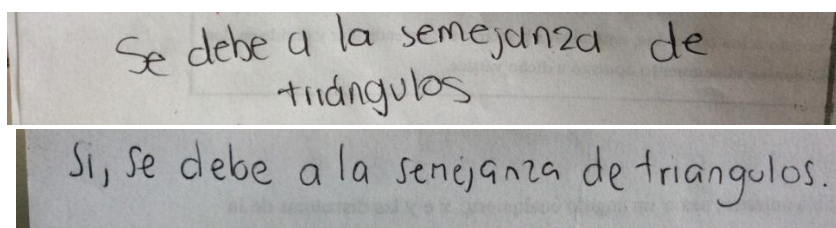 Se debe a la semejanza de
triángulos
Si, se debe a la semejanza de triángulos.